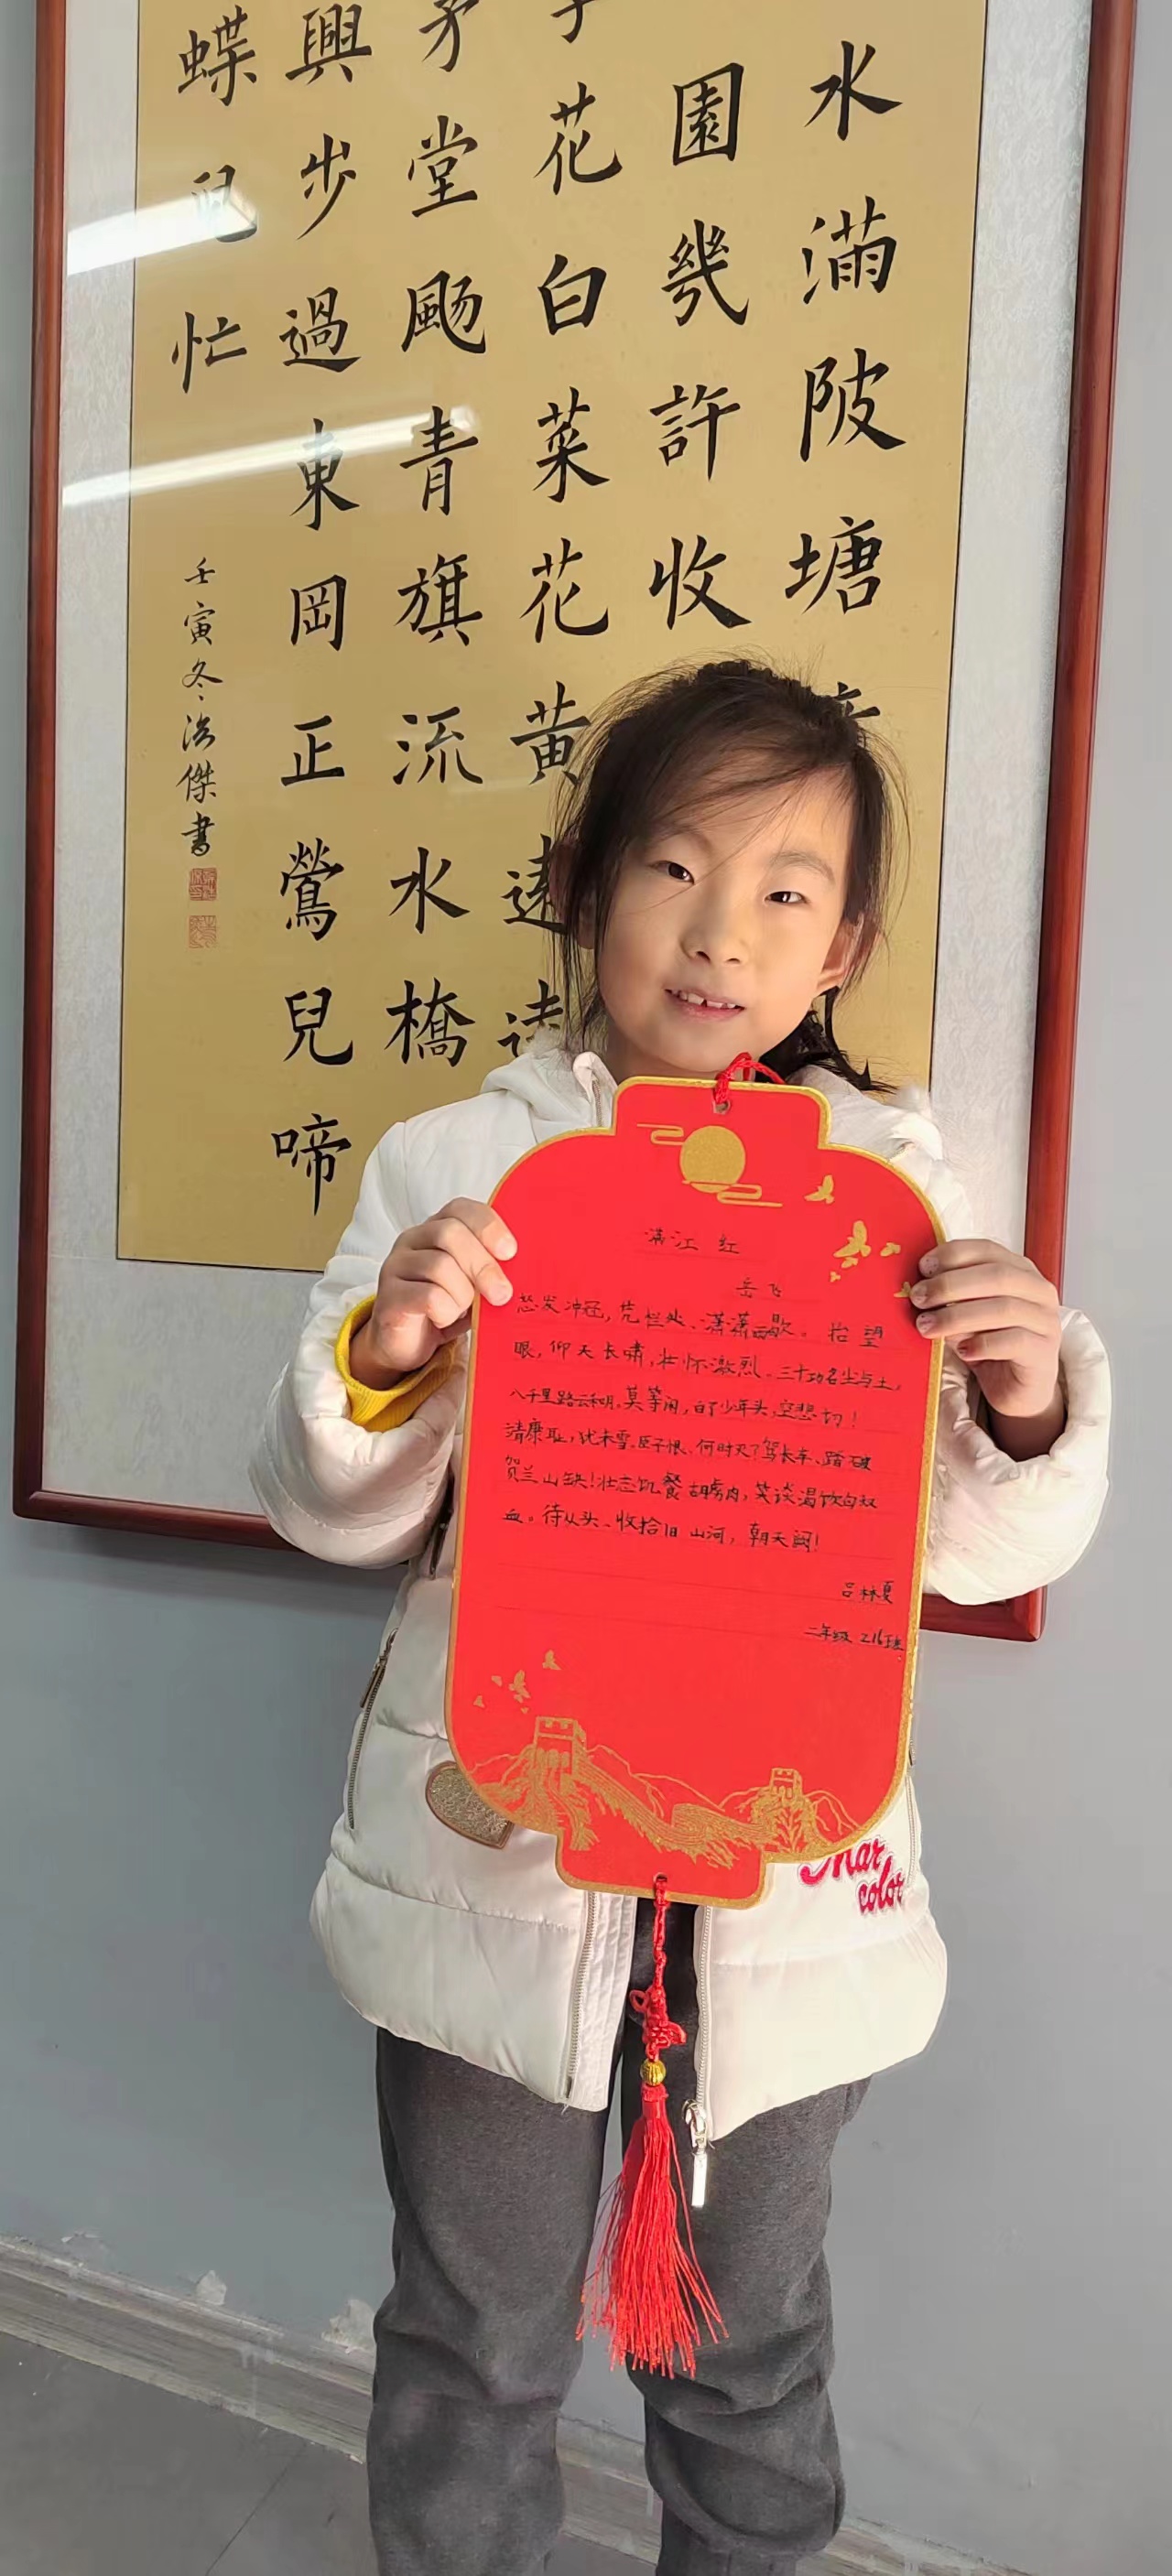 水满陂塘
園幾許收
花白菜花黄遠遠
茅堂颺青旗流水橋
興步過東岡正鶯兒啼
蝶兒忙
壬寅冬
傑書
满江红
岳飞
怒发冲冠,凭栏处、潇潇雨歇。抬望
眼,仰天长啸,壮怀激烈。三十功名尘与土,
八千里路云和月。莫等闲,白了少年头,空悲切!
清康耻,犹未雪。臣子恨,何时灭?驾长车、踏破
贺兰山缺!壮志饥餐胡虏肉,笑谈渴饮匈奴
血。待从头、收拾旧山河,朝天阙!
吕林夏
二年级 216班
Mar
color